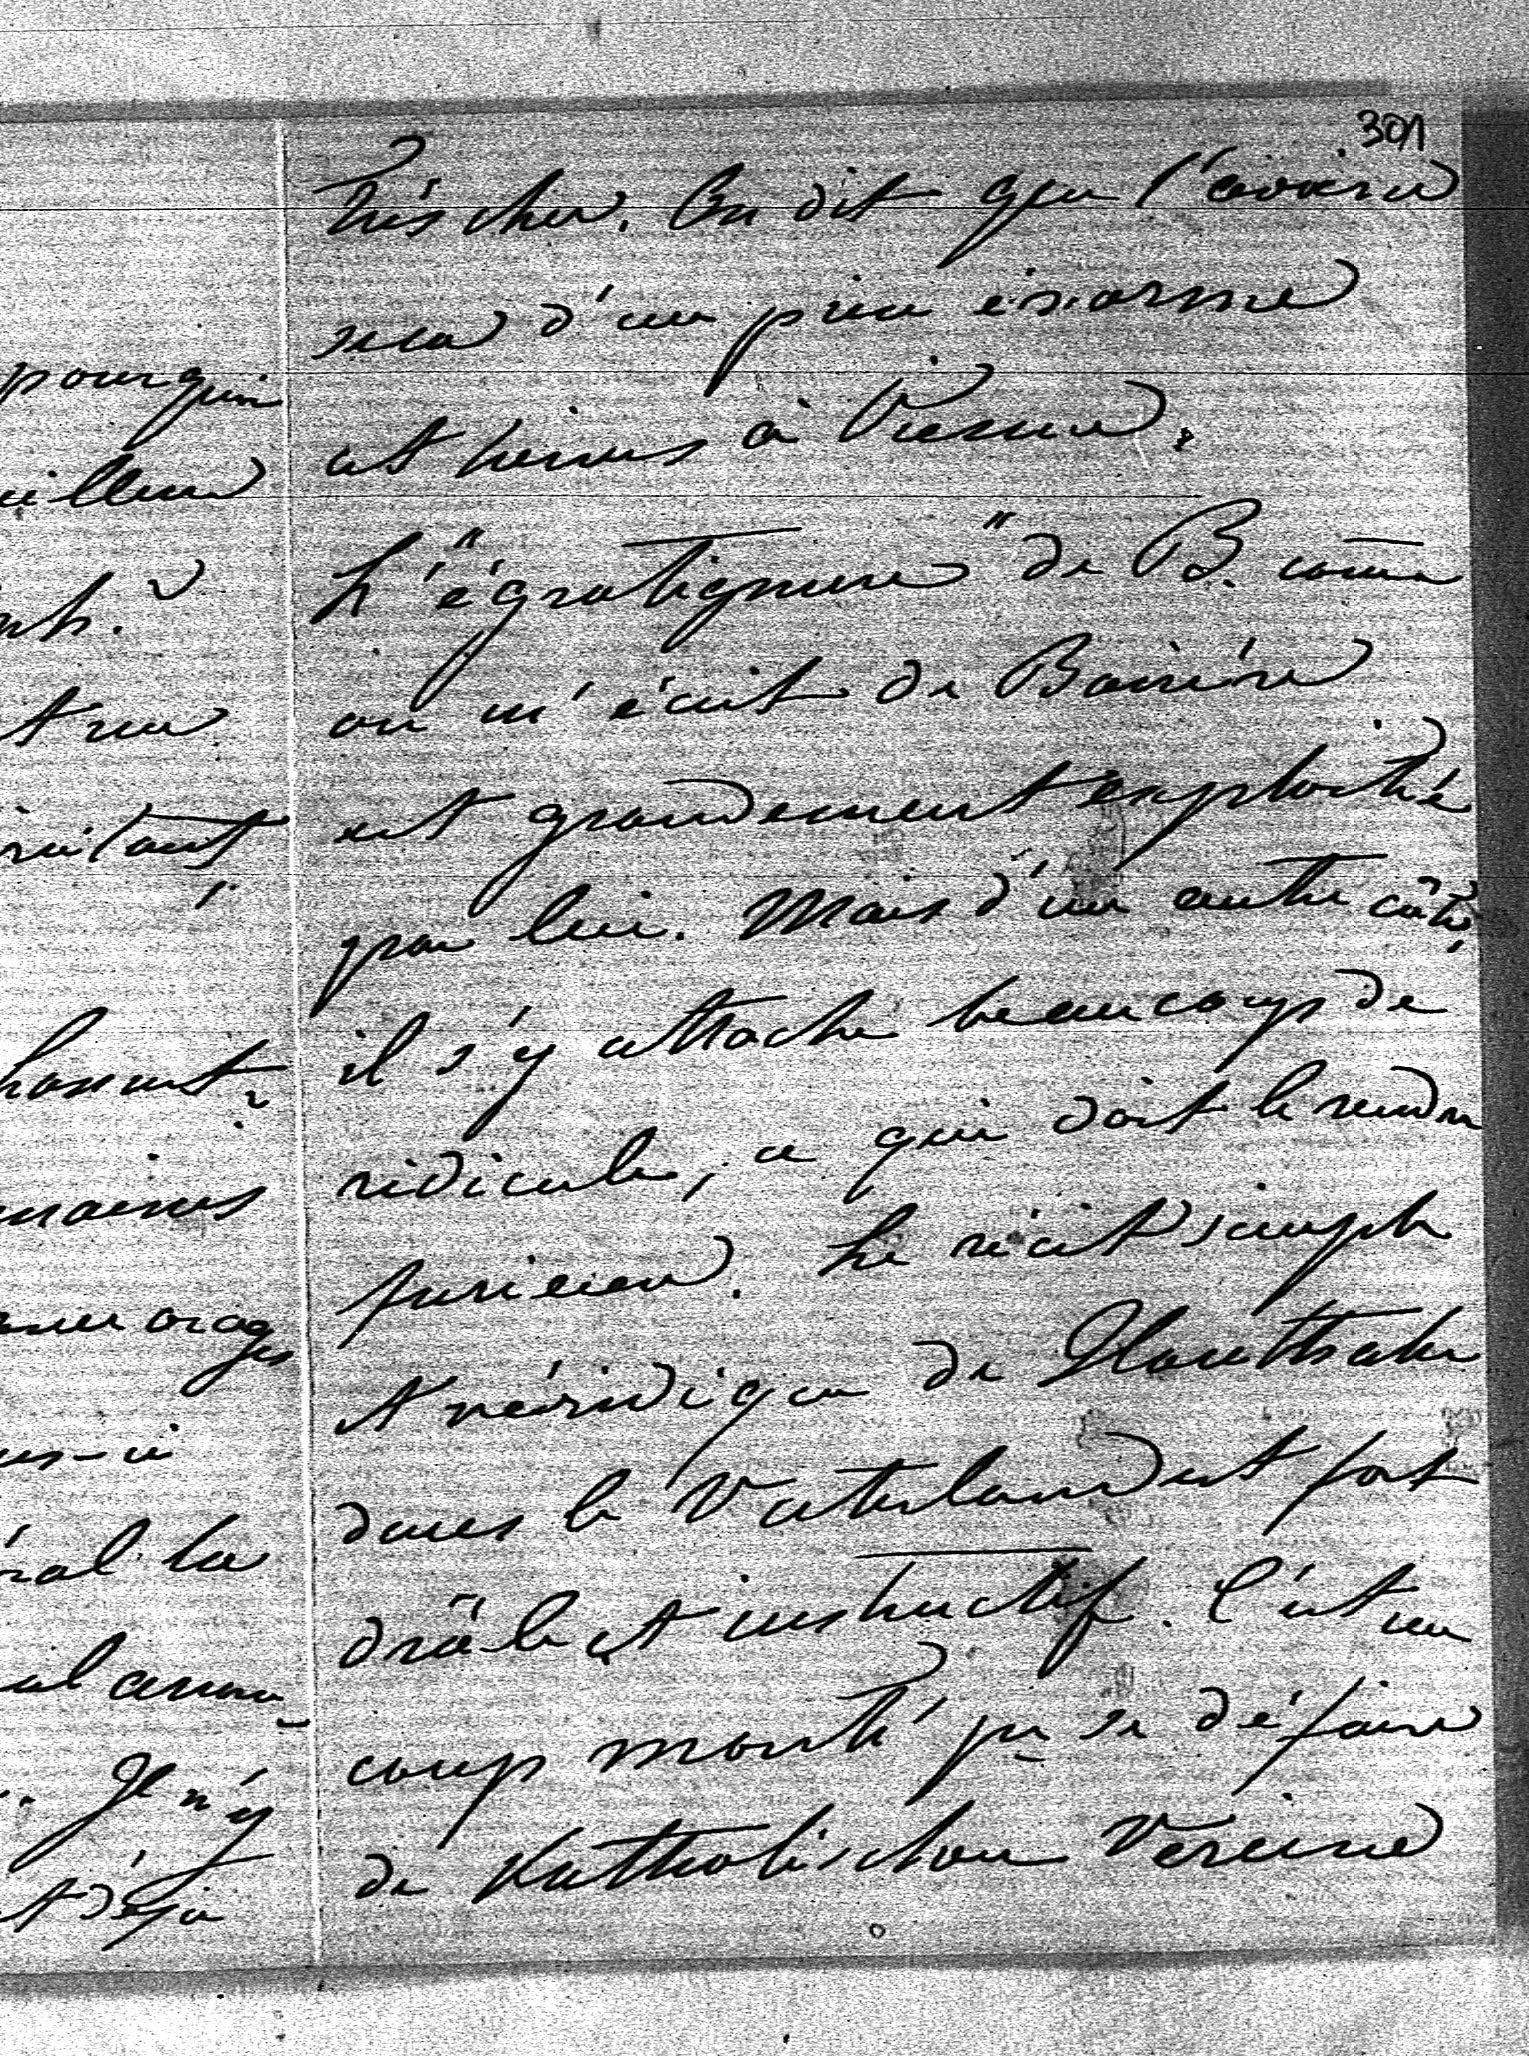 301
très cher. On dit que l'avoine
sera d'un prix énorme
cet hiver à Vienne.
L'"égratignure" de B. come
on m'écrit de Bavière
est grandement exploitée
par lui. Mais d'un autre côté,
il s'y attache beaucoup de
ridicule, ce qui doit le rendre
furieux. Le récit simple
et véridique de Hauthaler
dans le Vaterland est fort
drôle et instructif. C'est un
coup monté pr se défaire
de Katholischen Vereine
pourquoi
meilleur
et me
maines
ous-ci
ral la
Il n'y
et déjà